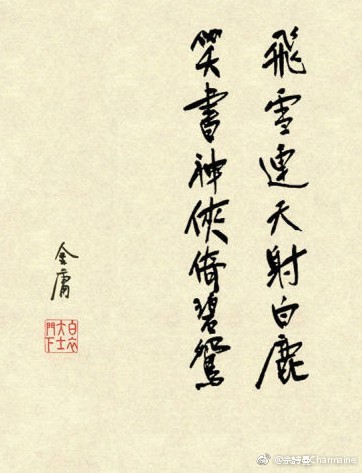 飛雪連天射白鹿
笑書神俠倚碧鴛
金庸
白衣
大士
門下
@佘詩曼Charmaine